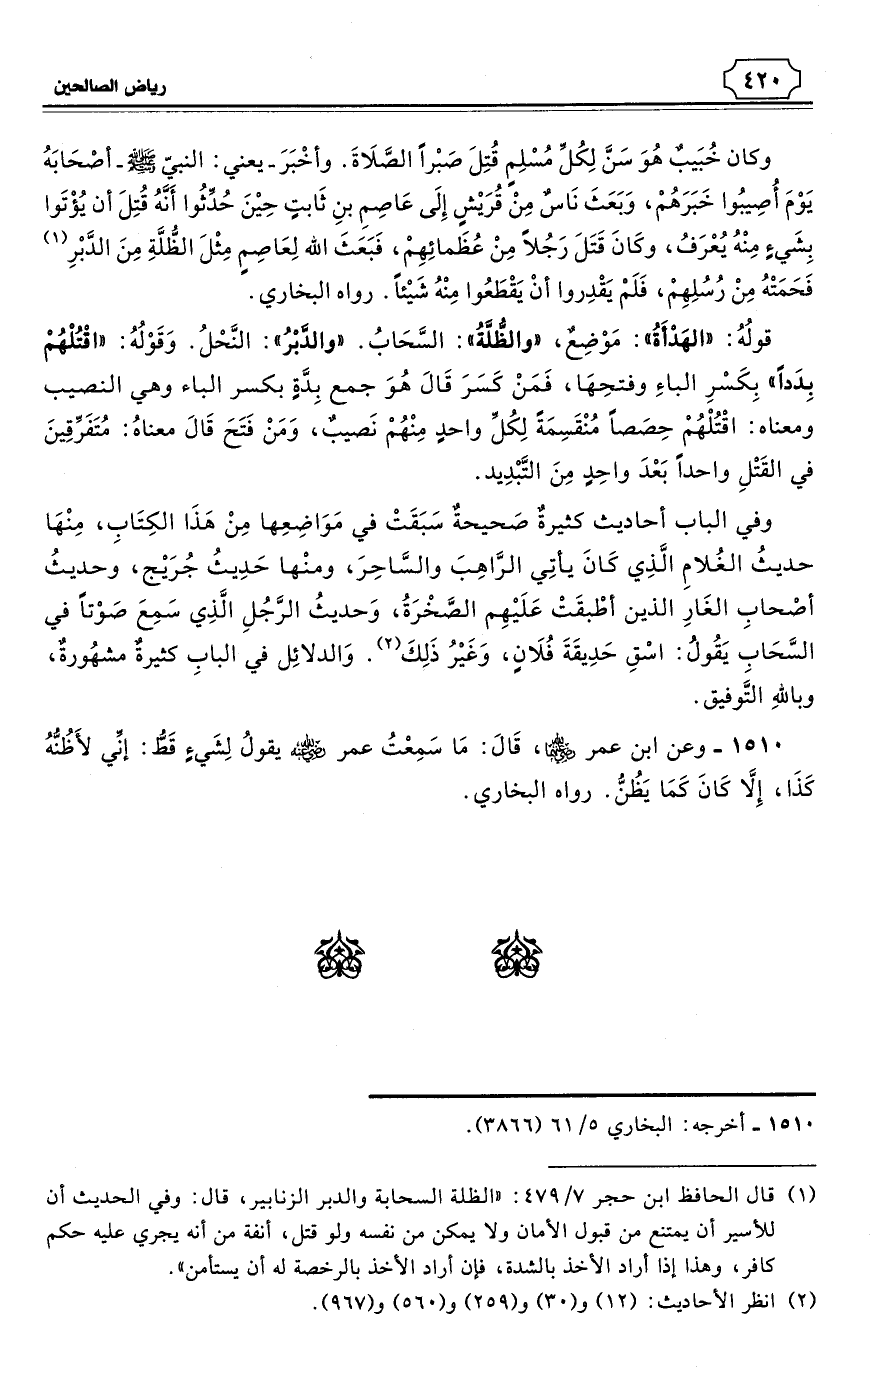 ٤٢٠
رياض الصالحين
وكان خُبَيبٌ هُوَ سَنَّ لِكُلِّ مُسْلِمٍ قُتِلَ صَبْراً الصَّلَاةَ. وأخْبَرَ ـ يعني: النبيّ ﷺ ـ أصْحَابَهُ
يَوْمَ أُصِيبُوا خَبَرَهُمْ، وَبَعَثَ نَاسٌ مِنْ قُرَيْشٍ إلَى عَاصِمِ بنِ ثَابتٍ حِيْنَ حُدِّثُوا أَنَّهُ قُتِلَ أن يُؤْتَوا
بِشَيءٍ مِنْهُ يُعْرَفُ، وكَانَ قَتَلَ رَجُلاً مِنْ عُظَمائِهِمْ، فَبَعَثَ الله لِعَاصِمٍ مِثْلَ الظُّلَّةِ مِنَ الدَّبْرِ(١)
فَحَمَتْهُ مِنْ رُسُلِهِمْ، فَلَمْ يَقْدِروا أنْ يَقْطَعُوا مِنْهُ شَيْئاً. رواه البخاري.
قولُهُ: «الهَدْأَةُ»: مَوْضِعٌ، «والظُّلَّةُ»: السَّحَابُ. «والدَّبْرُ»: النَّحْلُ. وَقَوْلُهُ: «اقْتُلْهُمْ
بِدَداً» بِكَسْرِ الباءِ وفتحِهَا، فَمَنْ كَسَرَ قَالَ هُوَ جمع بِدَّةٍ بكسر الباء وهي النصيب
ومعناه: اقْتُلْهُمْ حِصَصاً مُنْقَسِمَةً لِكُلِّ واحدٍ مِنْهُمْ نَصيبٌ، وَمَنْ فَتَحَ قَالَ معناهُ: مُتَفَرِّقِينَ
في القَتْلِ واحداً بَعْدَ واحِدٍ مِنَ التَّبْدِيد.
وفي الباب أحاديث كثيرةٌ صَحيحةٌ سَبَقَتْ في مَوَاضِعِها مِنْ هَذَا الكِتَابِ، مِنْهَا
حديثُ الغُلامِ الَّذِي كَانَ يأتِي الرَّاهِبَ والسَّاحِرَ، ومنْها حَدِيثُ جُرَيْجٍ، وحديثُ
أصْحابِ الغَارِ الذين أطْبقَتْ عَلَيْهِم الصَّخْرَةُ، وَحديثُ الرَّجُلِ الَّذِي سَمِعَ صَوْتاً في
السَّحَابِ يَقُولُ: اسْقِ حَدِيقَةَ فُلَانٍ، وَغَيْرُ ذَلِكَ(٢). وَالدلائِل في البابِ كثيرةٌ مشهُورةٌ،
وباللهِ التَّوفيق.
١٥١٠ ـ وعن ابن عمر رضي الله عنهما، قَالَ: مَا سَمِعْتُ عمر رضي الله عنه يقولُ لِشَيءٍ قَطُّ: إنِّي لأَظُنُّهُ
كَذَا، إلَّا كَانَ كَمَا يَظُنُّ. رواه البخاري.
١٥١٠ ـ أخرجه: البخاري ٥/ ٦١ (٣٨٦٦).
(١) قال الحافظ ابن حجر ٧/ ٤٧٩: «الظلة السحابة والدبر الزنابير، قال: وفي الحديث أن
للأسير أن يمتنع من قبول الأمان ولا يمكن من نفسه ولو قتل، أنفة من أنه يجري عليه حكم
كافر، وهذا إذا أراد الأخذ بالشدة، فإن أراد الأخذ بالرخصة له أن يستأمن».
(٢) انظر الأحاديث: (١٢) و(٣٠) و(٢٥٩) و(٥٦٠) و(٩٦٧).